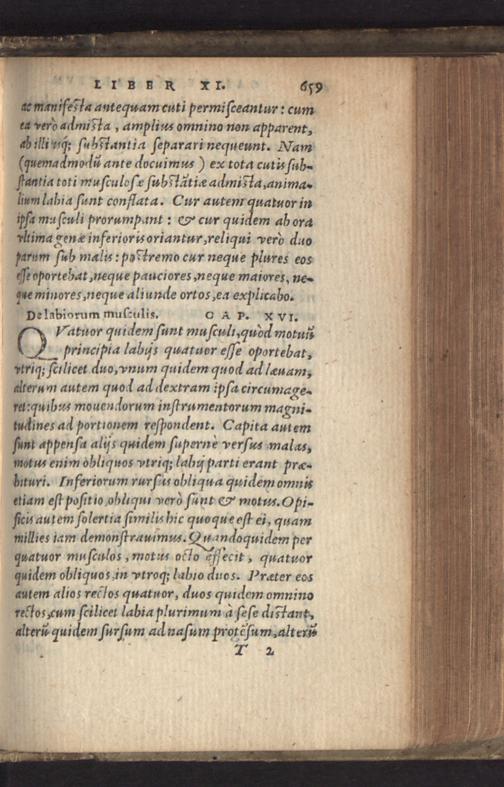 LIBER XI. 659
ac manifesta antequam cuti permisceantur: cum
ea verò admista, amplius omnino non apparent,
ab illiusq; substantia separari nequeunt. Nam
(quemadmodũ ante docuimus) ex tota cutis sub-
stantia toti musculosæ substãtiæ admista, anima-
lium labia sunt conflata. Cur autem quatuor in
ipsa musculi prorumpant: & cur quidem ab ora
vltima genæ inferioris oriantur, reliqui verò duo
parum sub malis: postremo cur neque plures eos
esse oportebat, neque pauciores, neque maiores, ne-
que minores, neque aliunde ortos, ea explicabo.
De labiorum musculis. CAP. XVI.
QVatuor quidem sunt musculi, quòd motuũ
principia labijs quatuor esse oportebat,
vtriq; scilicet duo, vnum quidem quod ad læuam,
alterum autem quod ad dextram ipsa circumage-
ret: quibus mouendorum instrumentorum magni-
tudines ad portionem respondent. Capita autem
sunt appensa alijs quidem supernè versus malas,
motus enim obliquos vtriq; labij parti erant præ-
bituri. Inferiorum rursus obliqua quidem omnis
etiam est positio, obliqui verò sunt & motus. Opi-
ficis autem solertia similis hic quoque est ei, quam
millies iam demonstrauimus. Quandoquidem per
quatuor musculos, motus octo effecit, quatuor
quidem obliquos, in vtroq; labio duos. Præter eos
autem alios rectos quatuor, duos quidem omnino
rectos, cum scilicet labia plurimum à sese distant,
alterũ quidem sursum ad nasum protẽsum, alterũ
T 2